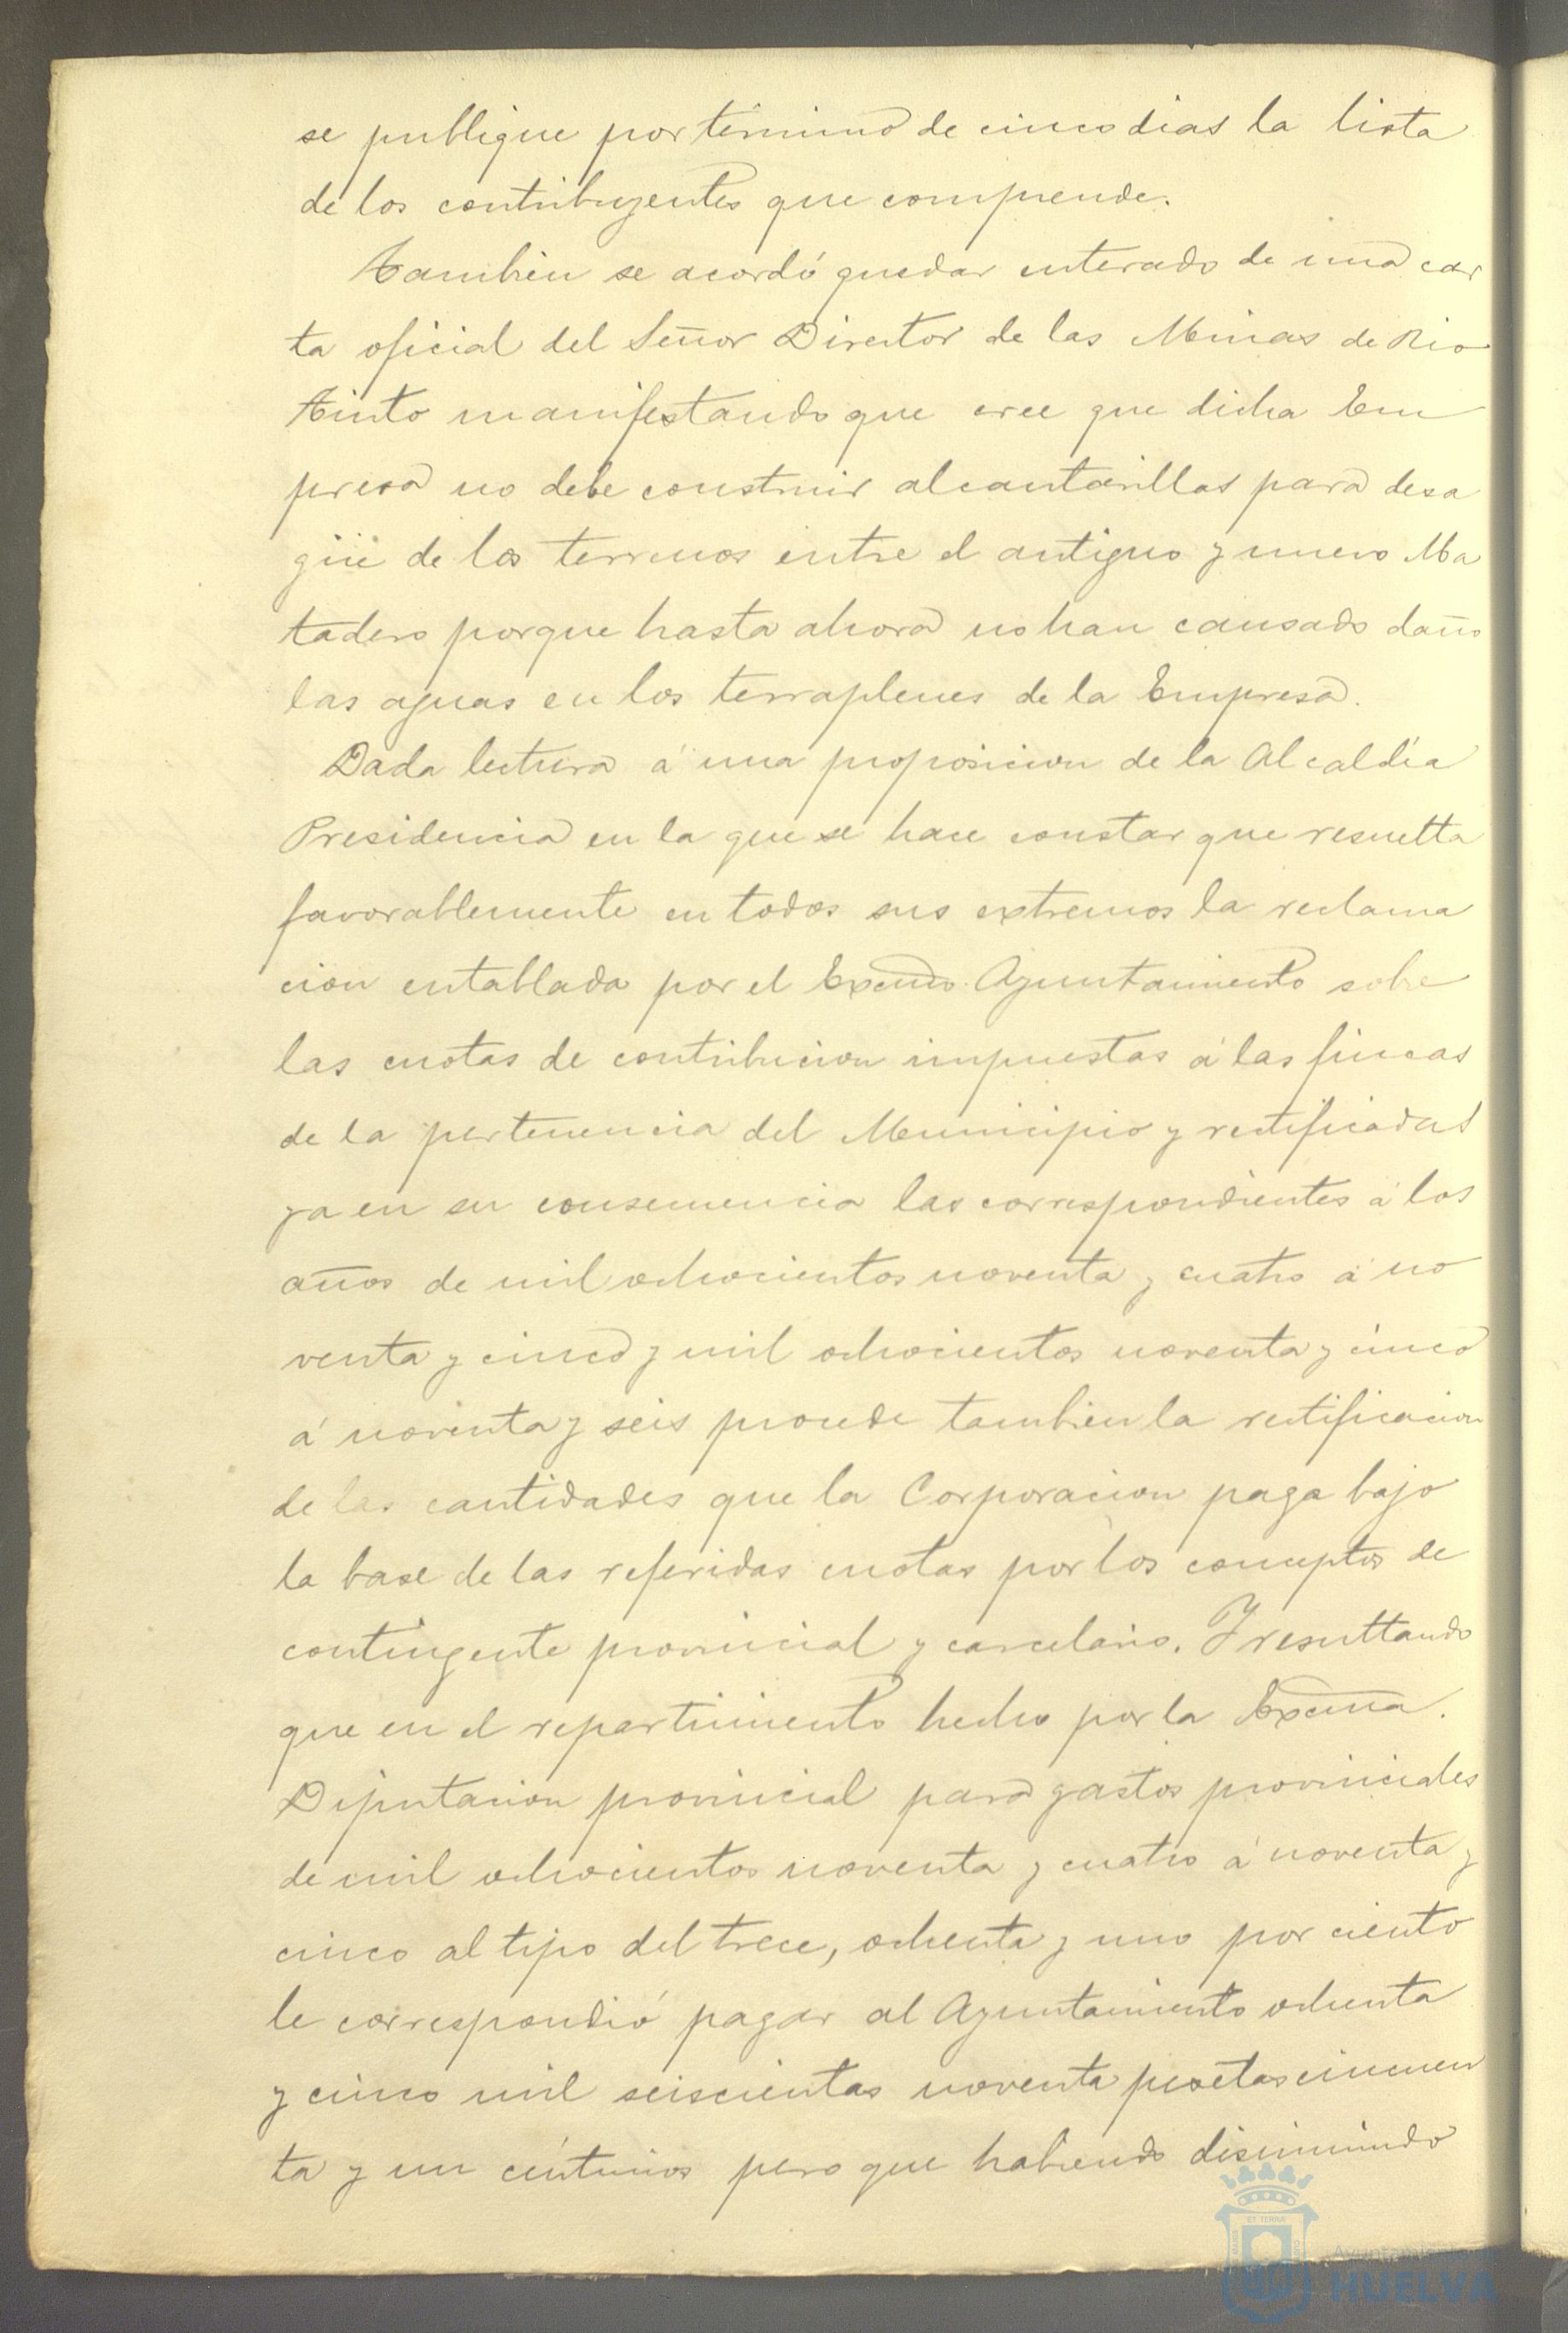 se publique por término de cinco dias la lista
de los contribuyentes que comprende.
Tambien se acordó quedar enterado de una car
ta oficial del Señor Director de las Minas de Rio
Tinto manifestando que cree que dicha Em
presa no debe construir alcantarillas para desa
güe de los terrenos entre el antiguo y nuevo Ma
tadero porque hasta ahora no han causado daño
las aguas en los terraplenes de la Empresa.
Dada lectura á una proposicion de la Alcaldía
Presidencia en la que se hace constar que resuelta
favorablemente en todos sus extremos la reclama
cion entablada por el Excmo. Ayuntamiento sobre
las cuotas de contribucion impuestas á las fincas
de la pertenencia del Municipio y rectificadas
ya en su consecuencia las correspondientes á los
años de mil ochocientos noventa y cuatro á no
venta y cinco y mil ochocientos noventa y cinco
á noventa y seis procede tambien la rectificacion
de las cantidades que la Corporacion paga bajo
la base de las referidas cuotas por los conceptos de
contingente provincial y carcelario. Y resultando
que en el repartimiento hecho por la Excma.
Diputacion provincial para gastos provinciales
de mil ochocientos noventa y cuatro á noventa y
cinco al tipo del trece, ochenta y uno por ciento
le correspondió pagar al Ayuntamiento ochenta
y cinco mil seiscientas noventa pesetas cincuen
ta y un céntimos pero que habiendo disminuido
Ayuntamiento de
HUELVA